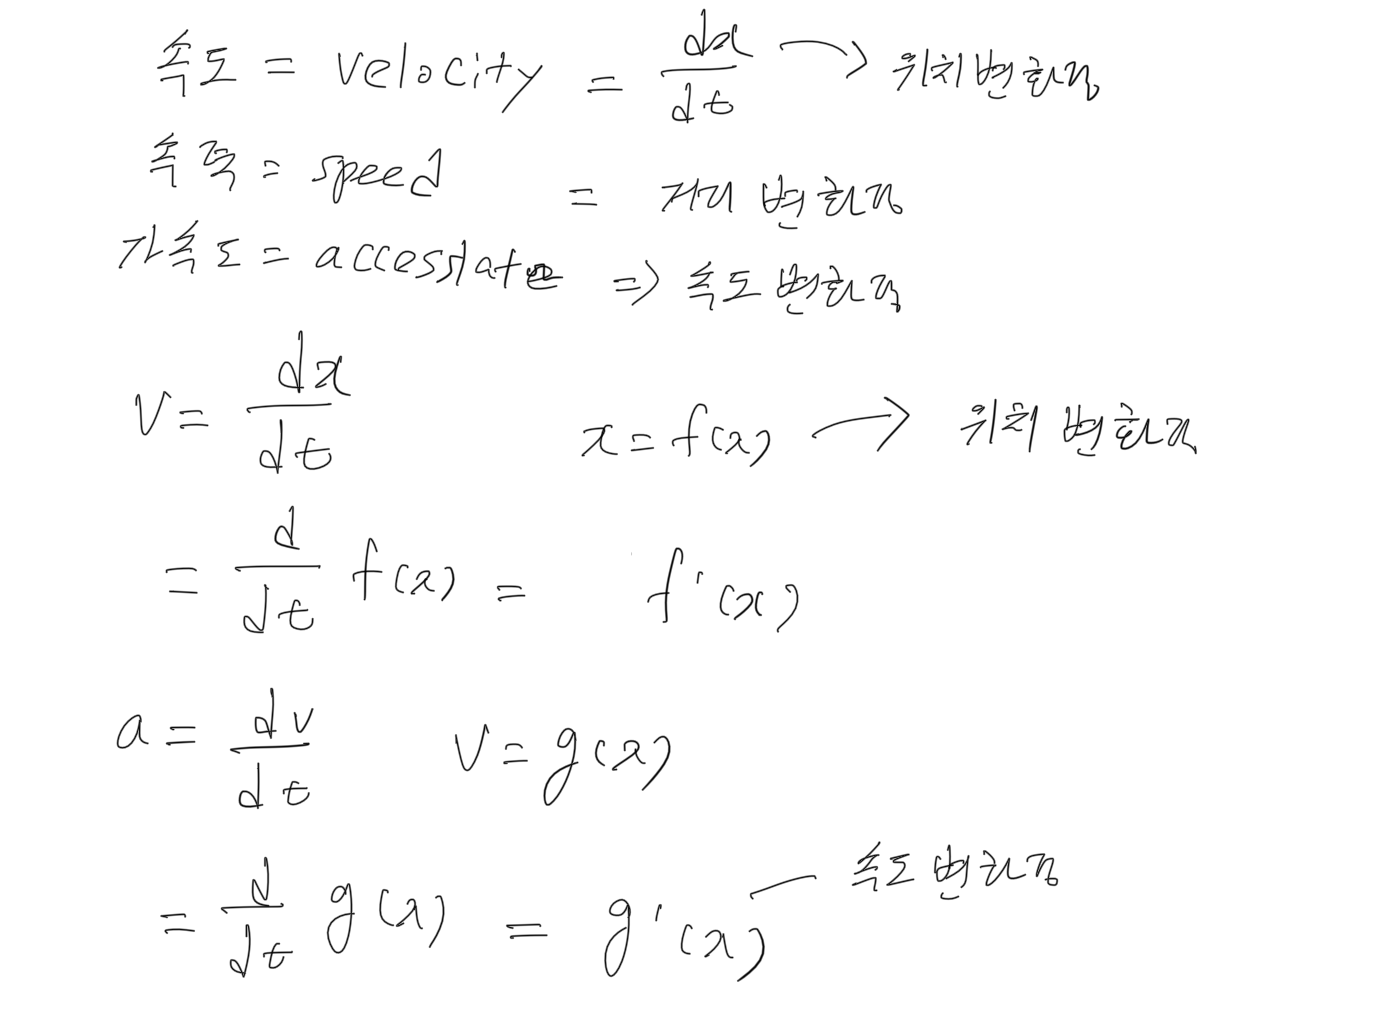 속도 = velocity = dx/dt → 위치변화량
속력 = speed = 거리 변화량
가속도 = => 속도 변화량
v = dx/dt x = f(x) → 위치 변화
= d/dt f(x) = f'(x)
a = dv/dt v = g(x)
= d/dt g(x) = g'(x) — 속도 변화량